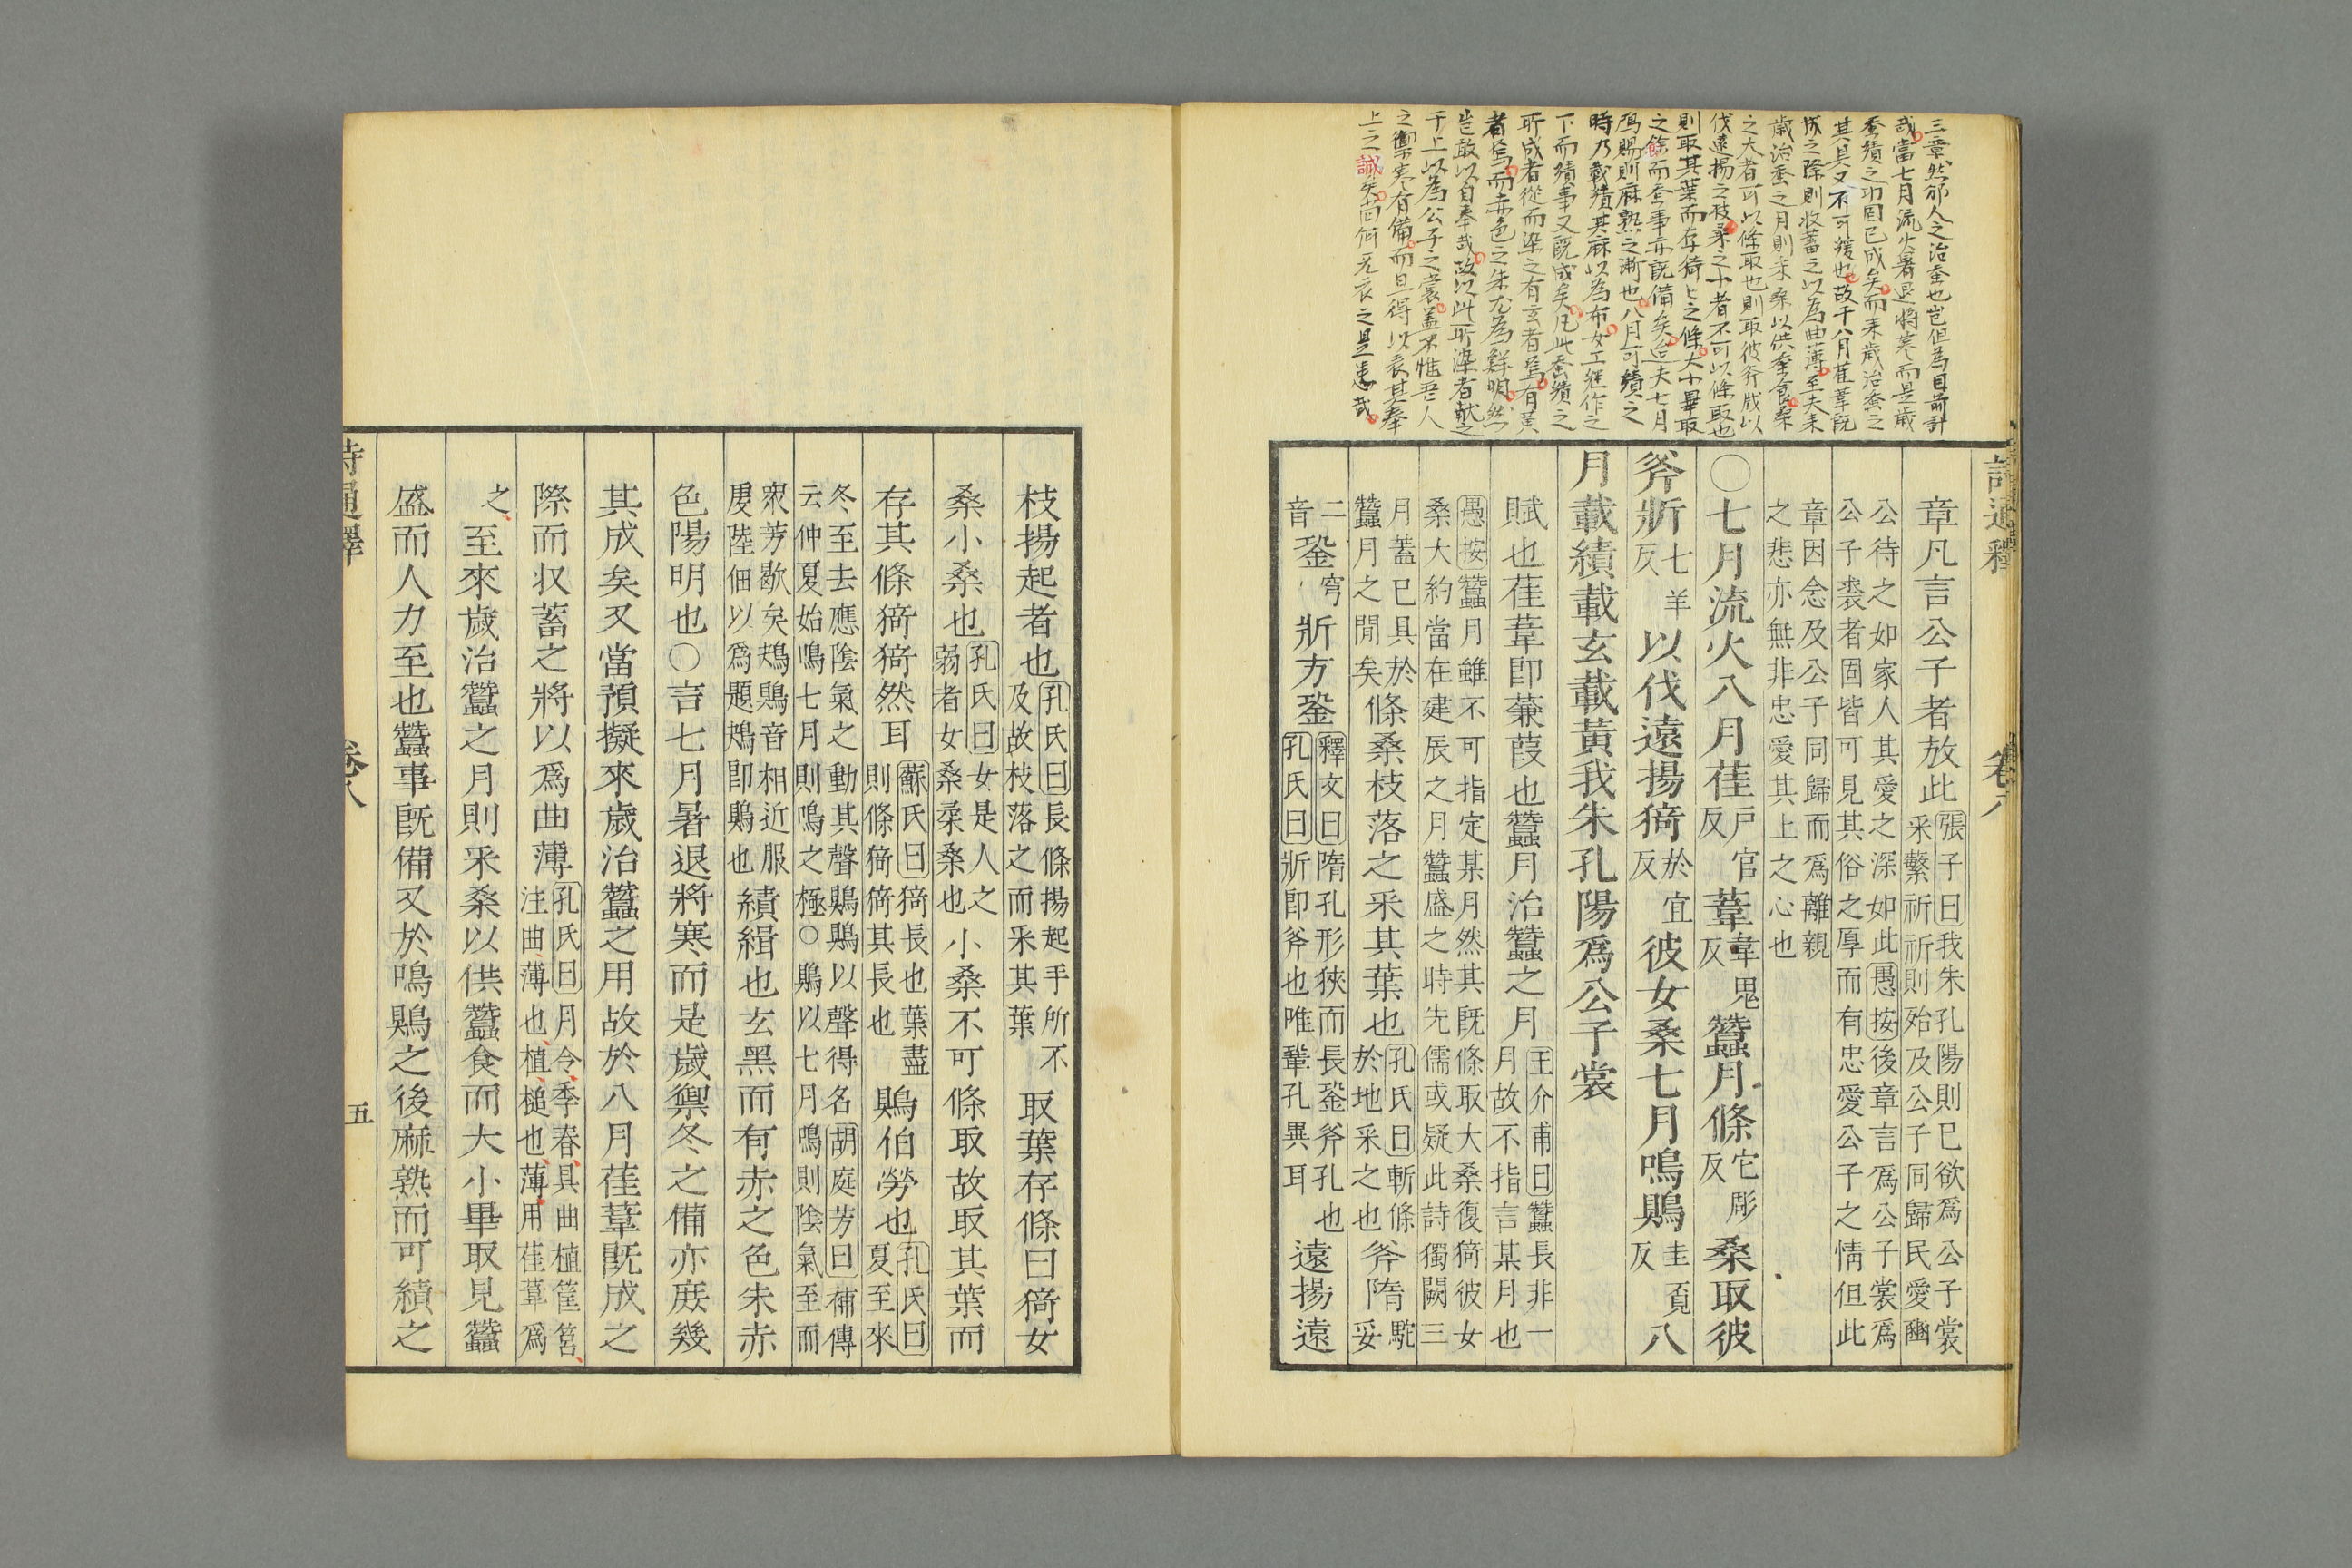 三章然邠人之治蚕也岂但為目前計
哉當七月流火暑退將寒而是歲
蚕績之功固已成矣而来歲治蚕之
其具又不可緩也故于八月萑葦既
成之際則收蓄之以為曲薄至夫来
歲治蚕之月則采桑以供蚕食桑
之大者可以條取也則取彼斧戕以
伐遠揚之枝桑之小者不可以條取也
則取其葉而存猗之條大小畢取
之餘而蚕事亦既備矣迨夫七月
鳴鵙則麻熟之漸也八月可績之
時乃載績其麻以為布女工继作之
下而績事又既成矣凡此蚕績之
所成者從而染之有玄者焉有黄
者焉而赤色之朱尤為鮮明然
岂敢以自奉哉故以此所染者献之
于上以為公子之裳盖不惟吾人
之禦寒有備而且得以表其奉
上之誠矣尚何无衣之是患哉
詩通釋 卷八
章凡言公子者放此
張子曰我朱孔陽則巳欲爲公子裳
采蘩祈祈則殆及公子同歸民愛豳
公待之如家人其愛之深如此愚按後章言爲公子裳爲
公子裘者固皆可見其俗之厚而有忠愛公子之情但此
章因念及公子同歸而爲離親
之悲亦無非忠愛其上之心也
○七月流火八月萑戶官反葦韋鬼反蠶月條它彫反桑取彼
斧斨七羊反以伐遠揚猗於宜反彼女桑七月鳴鵙圭覔反八
月載績載玄載黃我朱孔陽爲公子裳
賦也萑葦卽蒹葭也蠶月治蠶之月
王介甫曰蠶長非一
月故不指言某月也
愚按蠶月雖不可指定某月然其旣條取大桑復猗彼女
桑大約當在建辰之月蠶盛之時先儒或疑此詩獨闕三
月蓋已具於
蠶月之閒矣
條桑枝落之采其葉也
孔氏曰斬條
於地采之也
斧隋
駝
妥
二
音
銎
穹
斨方銎
釋文曰隋孔形狹而長銎斧孔也
孔氏曰斨卽斧也唯鞏孔異耳
遠揚遠
枝揚起者也
孔氏曰長條揚起手所不
及故枝落之而采其葉
取葉存條曰猗女
桑小桑也
孔氏曰女是人之
弱者女桑柔桑也
小桑不可條取故取其葉而
存其條猗猗然耳
蘇氏曰猗長也葉盡
則條猗猗其長也
鵙伯勞也
孔氏曰
夏至來
冬至去應陰氣之動其聲鵙鵙以聲得名胡庭芳曰補傳
云仲夏始鳴七月則鳴之極○鵙以七月鳴則陰氣至而
衆芳歇矣鴂鵙音相近服
虔陸佃以爲題鴂卽鵙也
績緝也玄黑而有赤之色朱赤
色陽明也○言七月暑退將寒而是歲禦冬之備亦庶幾
其成矣又當預擬來歲治蠶之用故於八月萑葦旣成之
際而収蓄之將以爲曲薄
孔氏曰月令季春具曲植筐筥
注曲薄也植槌也薄用萑葦爲
之
至來歲治蠶之月則采桑以供蠶食而大小畢取見蠶
盛而人力至也蠶事旣備又於鳴鵙之後麻熟而可績之
詩通釋 卷八 五